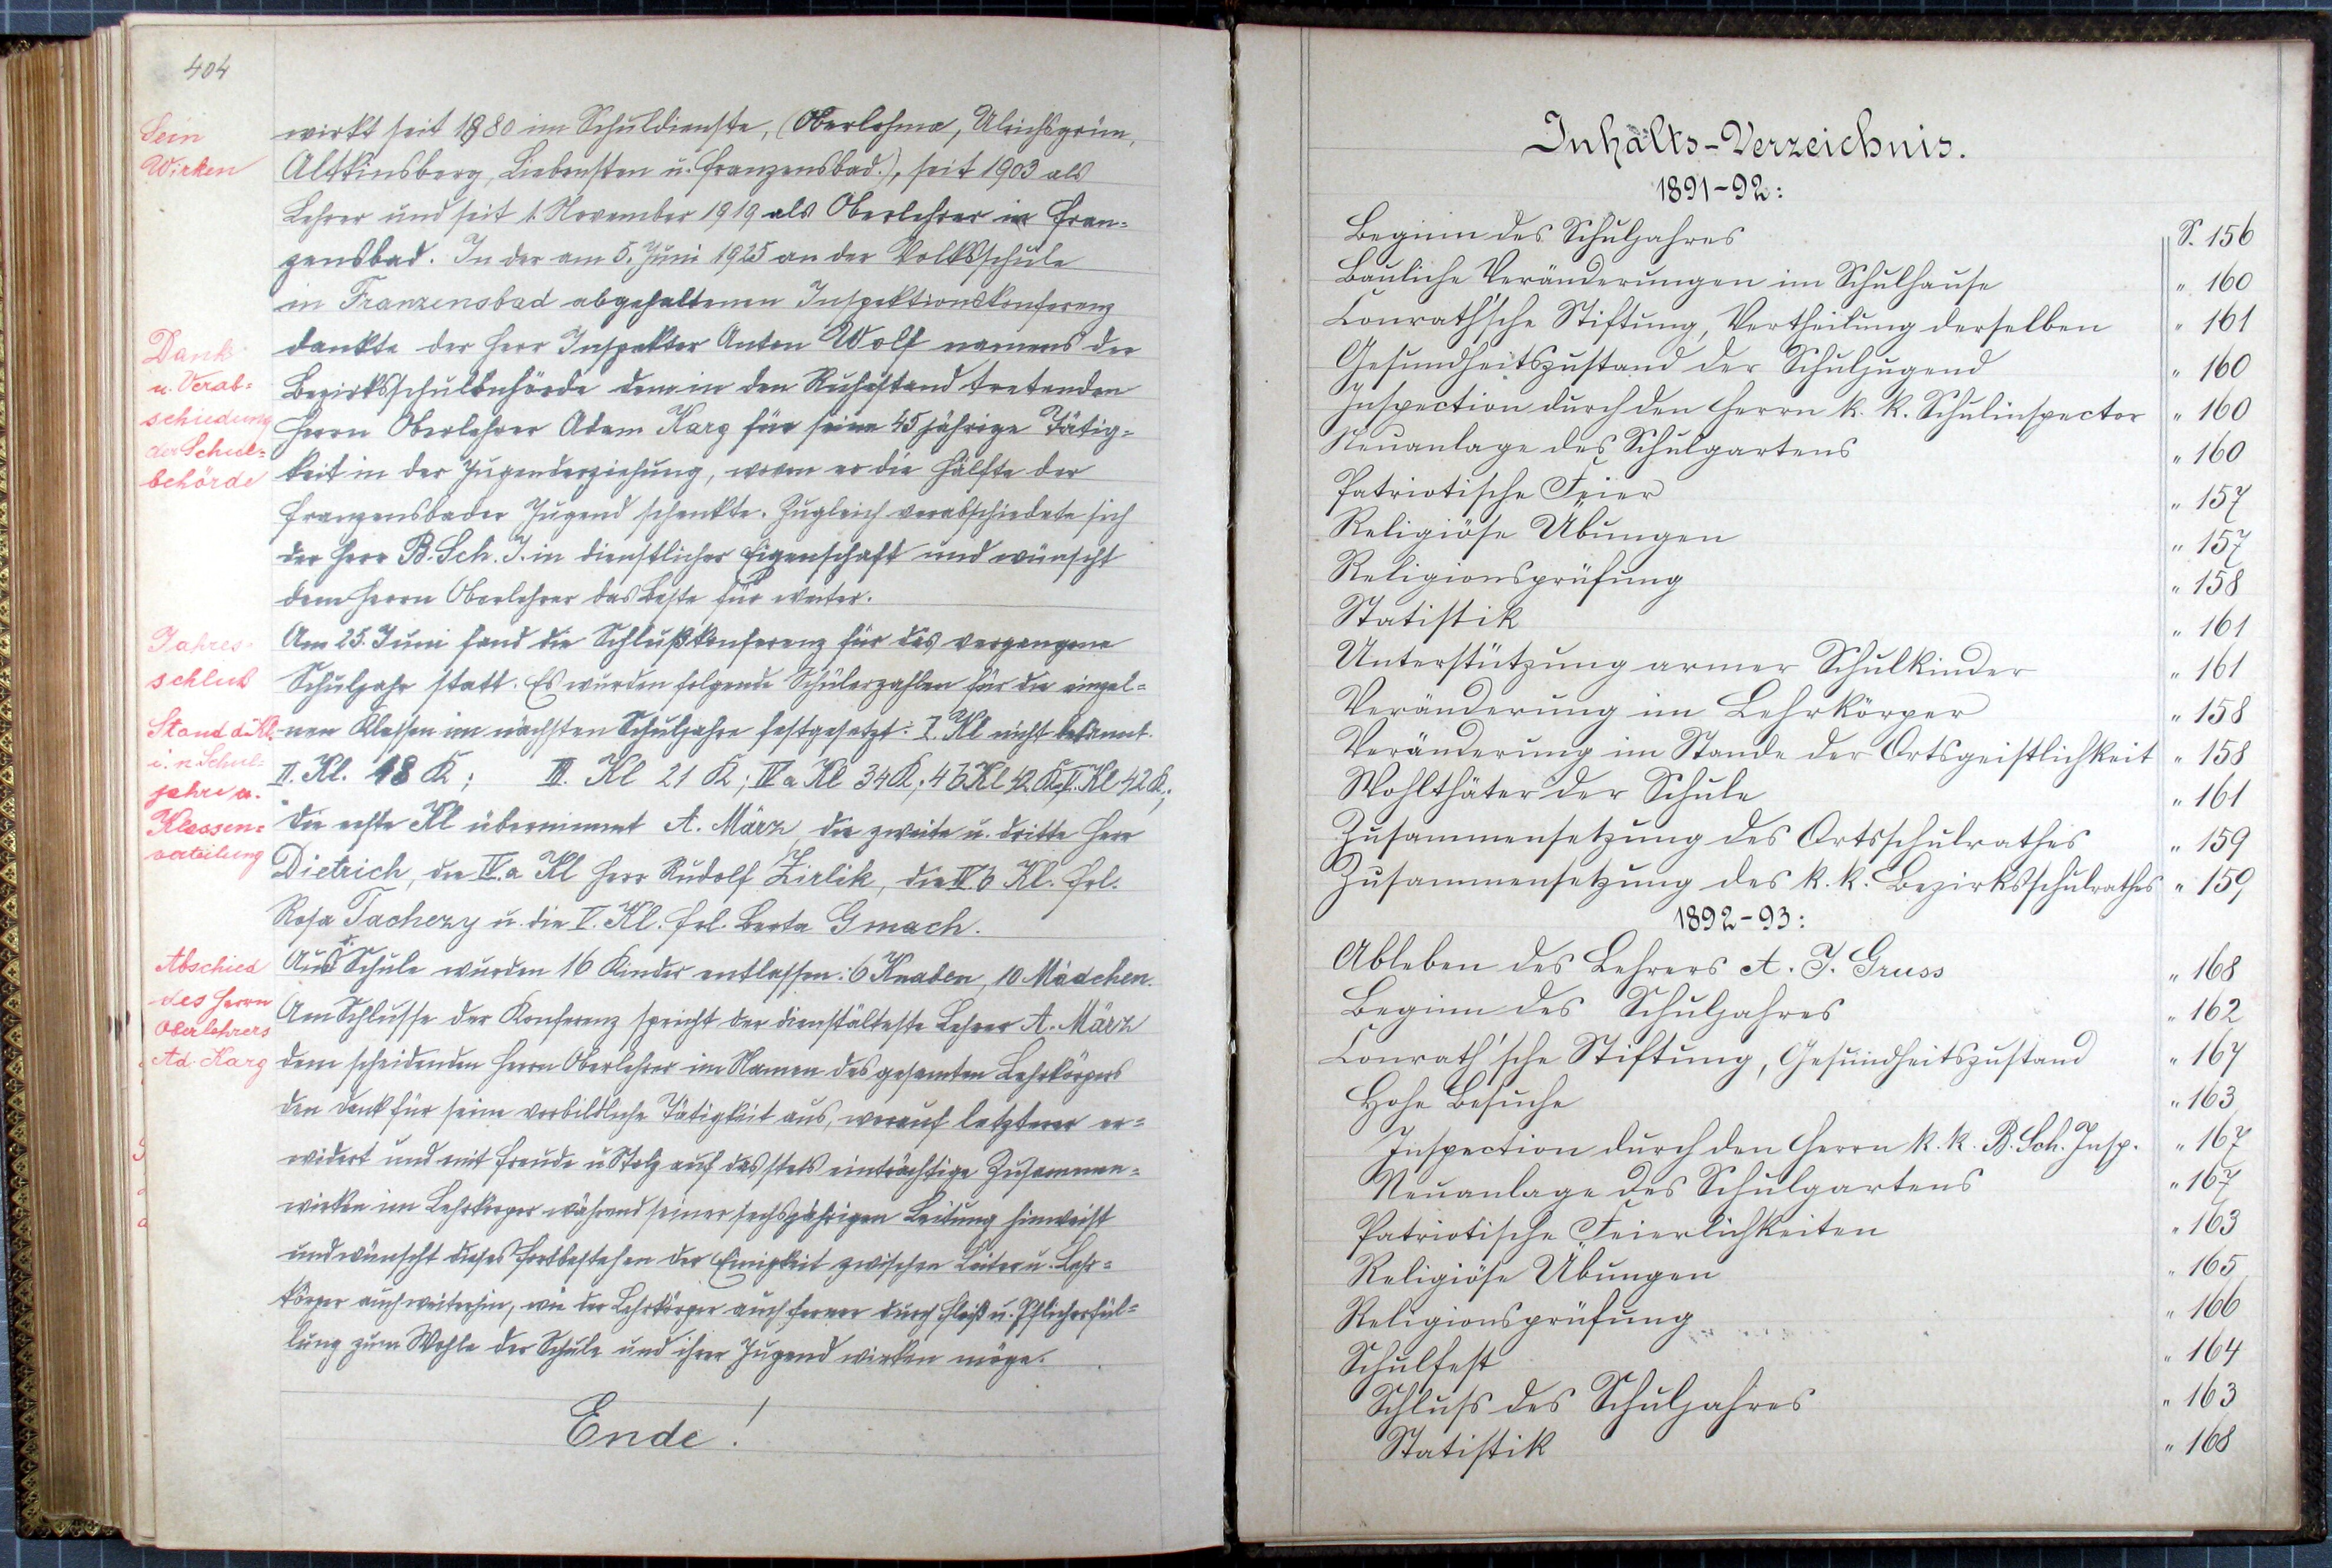 404
Sein
Wirken
wirkt seit 1880 im Schuldienste, (Oberlohma, Ulrichsgrün,
Altkinsberg, Liebenstein u. Franzensbad.), seit 1903 als
Lehrer und seit 1. November 1919 als Oberlehrer in Fran-
zensbad. In der am 5. Juni 1925 an der Volksschule
in Franzensbad abgehaltenen Inspektionskonferenz
Dank
u. Verab-
schiedung
der Schul-
behörde
dankte der Herr Inspektor Anton Wolf namens der
Bezirksschulbehörde dem in den Ruhestand tretenden
Herrn Oberlehrer Adam Karg für seine 45 jährige Tätig-
keit in der Jugenderziehung, wovon er die Hälfte der
Franzensbader Jugend schenkte. Zugleich verabschiedete sich
der Herr B. Sch. I. in dienstlicher Eigenschaft und wünscht
dem Herrn Oberlehrer das Beste für weiter.
Jahres-
schluß
Am 25. Juni fand die Schlußkonferenz für das vergangene
Schuljahr statt. Es wurden folgende Schülerzahlen für die einzel-
Stand d. Kl.
i. n. Schul-
jahre u.
Klassen-
verteilung
nen Klassen im nächsten Schuljahre festgesetzt: I. Kl nicht bekannt.
II. Kl. 48 K; III. Kl 21 K; IV a Kl 34 K; 4 b Kl 42 K; V. Kl 42 K;
die erste Kl übernimmt A. März, die zweite u. dritte Herr
Dietrich, die IV. a Kl Herr Rudolf Zirlik, die IV b Kl. Frl.
Rosa Tachezy u. die V. Kl. Frl. Berta Gmach.
Abschied
des Herrn
Oberlehrers
Ad. Karg
Aus d. Schule wurden 16 Kinder entlassen: 6 Knaben, 10 Mädchen.
Am Schlusse der Konferenz spricht der dienstälteste Lehrer A. März
dem scheidenden Herrn Oberlehrer im Namen des gesamten Lehrkörpers
den Dank für seine vorbildliche Tätigkeit aus, worauf letzterer er-
widert und mit Freude u Stolz auf das stets einträchtige Zusammen-
wirken im Lehrkörper während seiner sechsjährigen Leitung hinweist
und wünscht dieses Fortbestehen der Einigkeit zwischen Leiter u. Lehr-
körper auch weiterhin, wie der Lehrkörper auch ferner durch Fleiß u. Pflichterfül-
lung zum Wohle der Schule und ihrer Jugend wirken möge.
Ende!
Inhalts-Verzeichnis.
1891-92:
Beginn des Schuljahres S. 156
Bauliche Veränderungen im Schulhause " 160
Conrath'sche Stiftung, Vertheilung derselben " 161
Gesundheitszustand der Schuljugend " 160
Inspection durch den Herrn k. k. Schulinspector " 160
Neuanlage des Schulgartens " 160
Patriotische Feier " 157
Religiöse Übungen " 157
Religionsprüfung " 158
Statistik " 161
Unterstützung armer Schulkinder " 161
Veränderung im Lehrkörper " 158
Veränderung im Stande der Ortsgeistlichkeit " 158
Wohlthäter der Schule " 161
Zusammensetzung des Ortsschulrathes " 159
Zusammensetzung des k. k. Bezirksschulrathes " 159
1892-93:
Ableben des Lehrers A. J. Gruss " 168
Beginn des Schuljahres " 162
Conrath'sche Stiftung, Gesundheitszustand " 167
Hohe Besuche " 163
Inspection durch den Herrn k. k. B. Sch. Insp. " 167
Neuanlage des Schulgartens " 167
Patriotische Feierlichkeiten " 163
Religiöse Übungen " 165
Religionsprüfung " 166
Schulfest " 164
Schluss des Schuljahres " 163
Statistik " 168